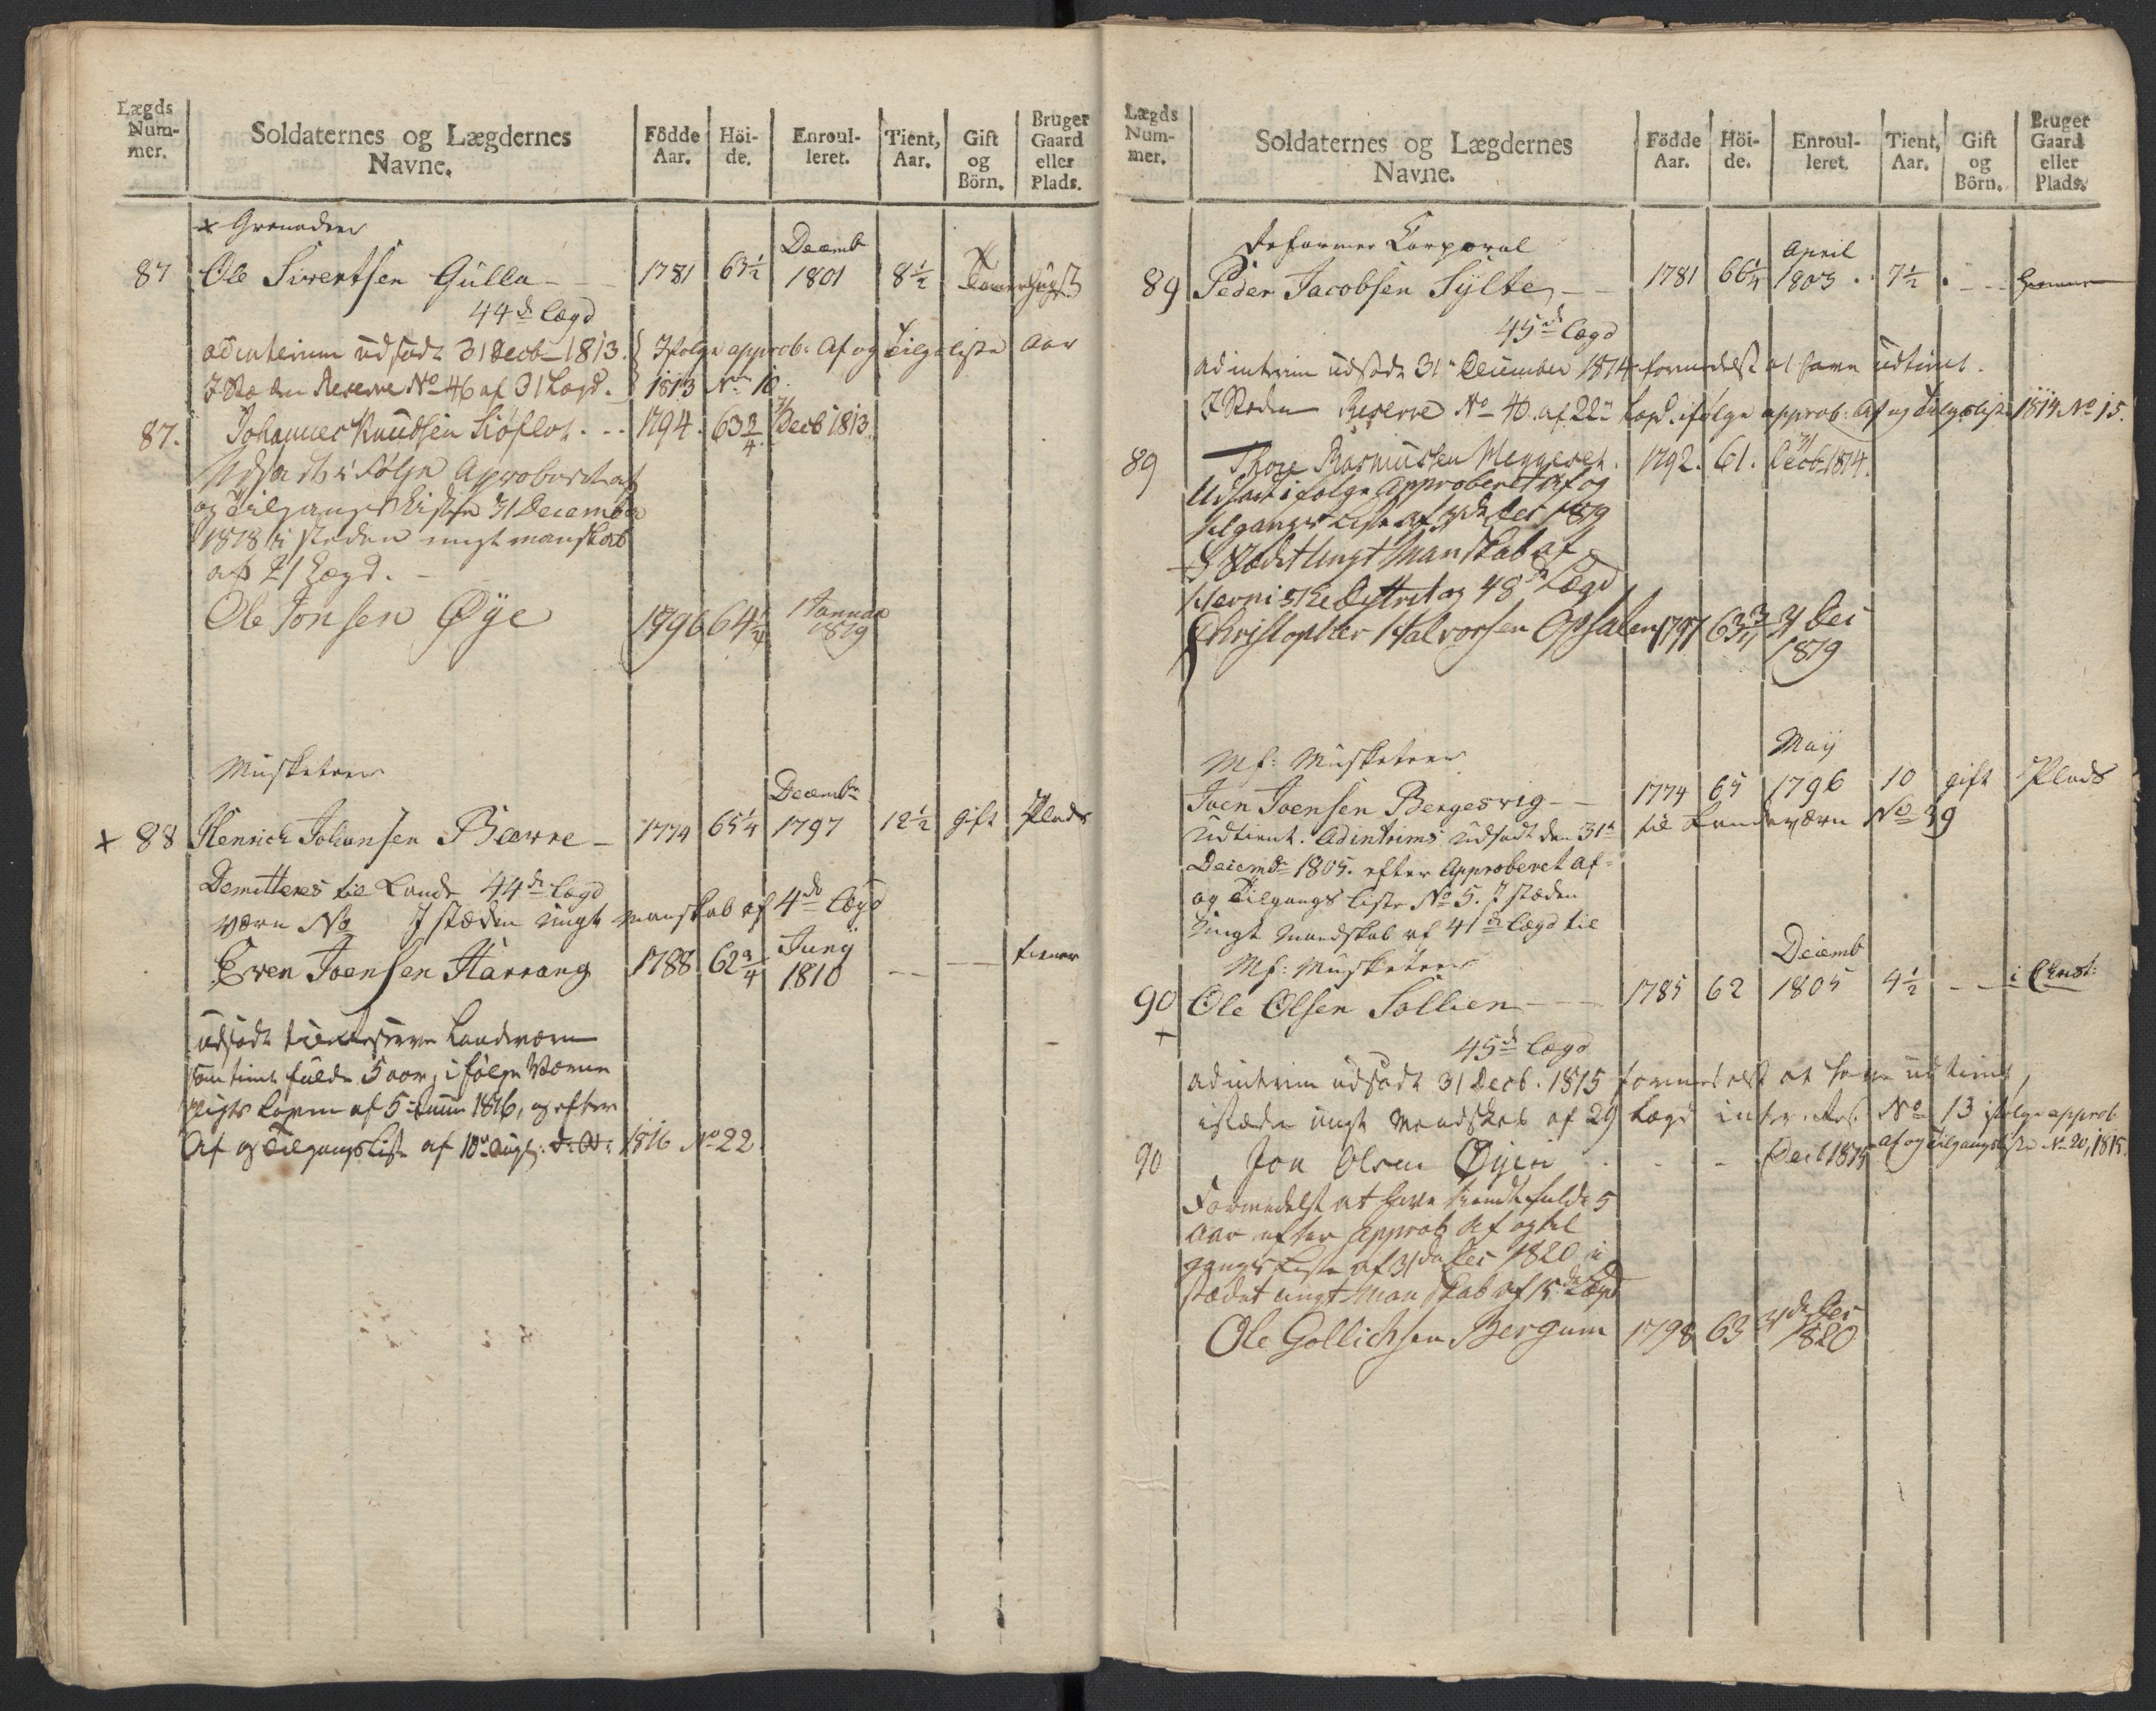 Lægds Num- mer.
Soldaternes og Lægdernes Navne.
Födde Aar.
Höi- de.
Enroul- leret.
Tient, Aar.
Gift og Börn.
Bruger Gaard eller Plads.
× Grenadeer
Decemb
87 Ole Siwertsen Gülla - - 1781 63½ 1801 8½
44de Lægd
ad interim udsadt 31 Decb 1813. Ifølge approb: Af og Tilgs liste Aar
I Stæden Reserve No 46 af 31 Lægd. 1813 No 10.
87. Johannes Knudsen Liøflot. - - 1794. 63¾ 31 Decb 1813.
Udsadt i Følge Approberet af
og Tilgangs Listen 31 December
1818 i stæden ungt manskab
af 21 Lægd. -
Ole Jonsen Øye 1796 64¼ 1 Januar 1819
Musketeer
Decembr
× 88 Henrich Johansen Biørne - 1774 65¼ 1797 12½ gift Plads
Demitteres til Lande 44de Lægd
værn No I stæden ungt manskab af 4de Lægd
Ewen Joensen Harrang 1788 62¾ Junÿ 1810 - - - - tiener
udsadt til Landværn
som tient fulde 5 aar, i følge Værne
pligts Loven af 5 Juni 1816, og efter
Af og Tilgangs Liste af 10de Augs: d: A: 1816 No 22.
Lægds Num- mer.
Soldaternes og Lægdernes Navne.
Födde Aar.
Höi- de.
Enroul- leret.
Tient, Aar.
Gift og Börn.
Bruger Gaard eller Plads.
Reformer Corporal
April
89 Peder Jacobsen Sÿlte - - 1781 66¼ 1803 7½
45de Lægd
ad interim udsadt 31te December 1814 formedelst at have udtient.
I Stæden Reserve No 40. af 22de Lægd. ifølge approb: Af og Tilgs liste 1814 No 15.
89 Thore Rasmussen Meggerset. 1792. 61. 31 Decb 1814.
Udsadt i følge Approberet Af og
tilgangs Liste af 31de Dec 1819
I Stædet ungt Manskab af
48de Lægd
Christopher Halvorsen Opsalen 1797 63¾ 31 Dec 1819
Mf: Musketeer
Maÿ
Joen Joensen Bergesvig - - 1774 65 1796 10 gift Plads
Udtient. Ad interims udsadt den 31te til Landeværn No 39
Decembr 1805. efter Approberet af-
og Tilgangs Liste No 5. I stæden
ungt Mandskab af 41de Lægd til
Mf: Musketeer
Decemb
90 Ole Olsen Sollien - - - 1785 62 1805 4½ - - i Christ:
+
45de Lægd
ad interim udsadt 31 Decb. 1815 formedelst at have udtient,
istæden ungt Mandskab af 29 Lægd No 13 ifølge approb
90 Jon Olsen Øyen - - - Decb 1815 af og Tilgangsliste No 20, 1815.
Formedelst at have tiendt fulde 5
Aar efter approb Af og til
gangs Liste af 31de Dec 1820 i
stædet ungt Manskab af 15de Lægd
Ole Gollichsen Bergum 1798 63 31de Dec 1820